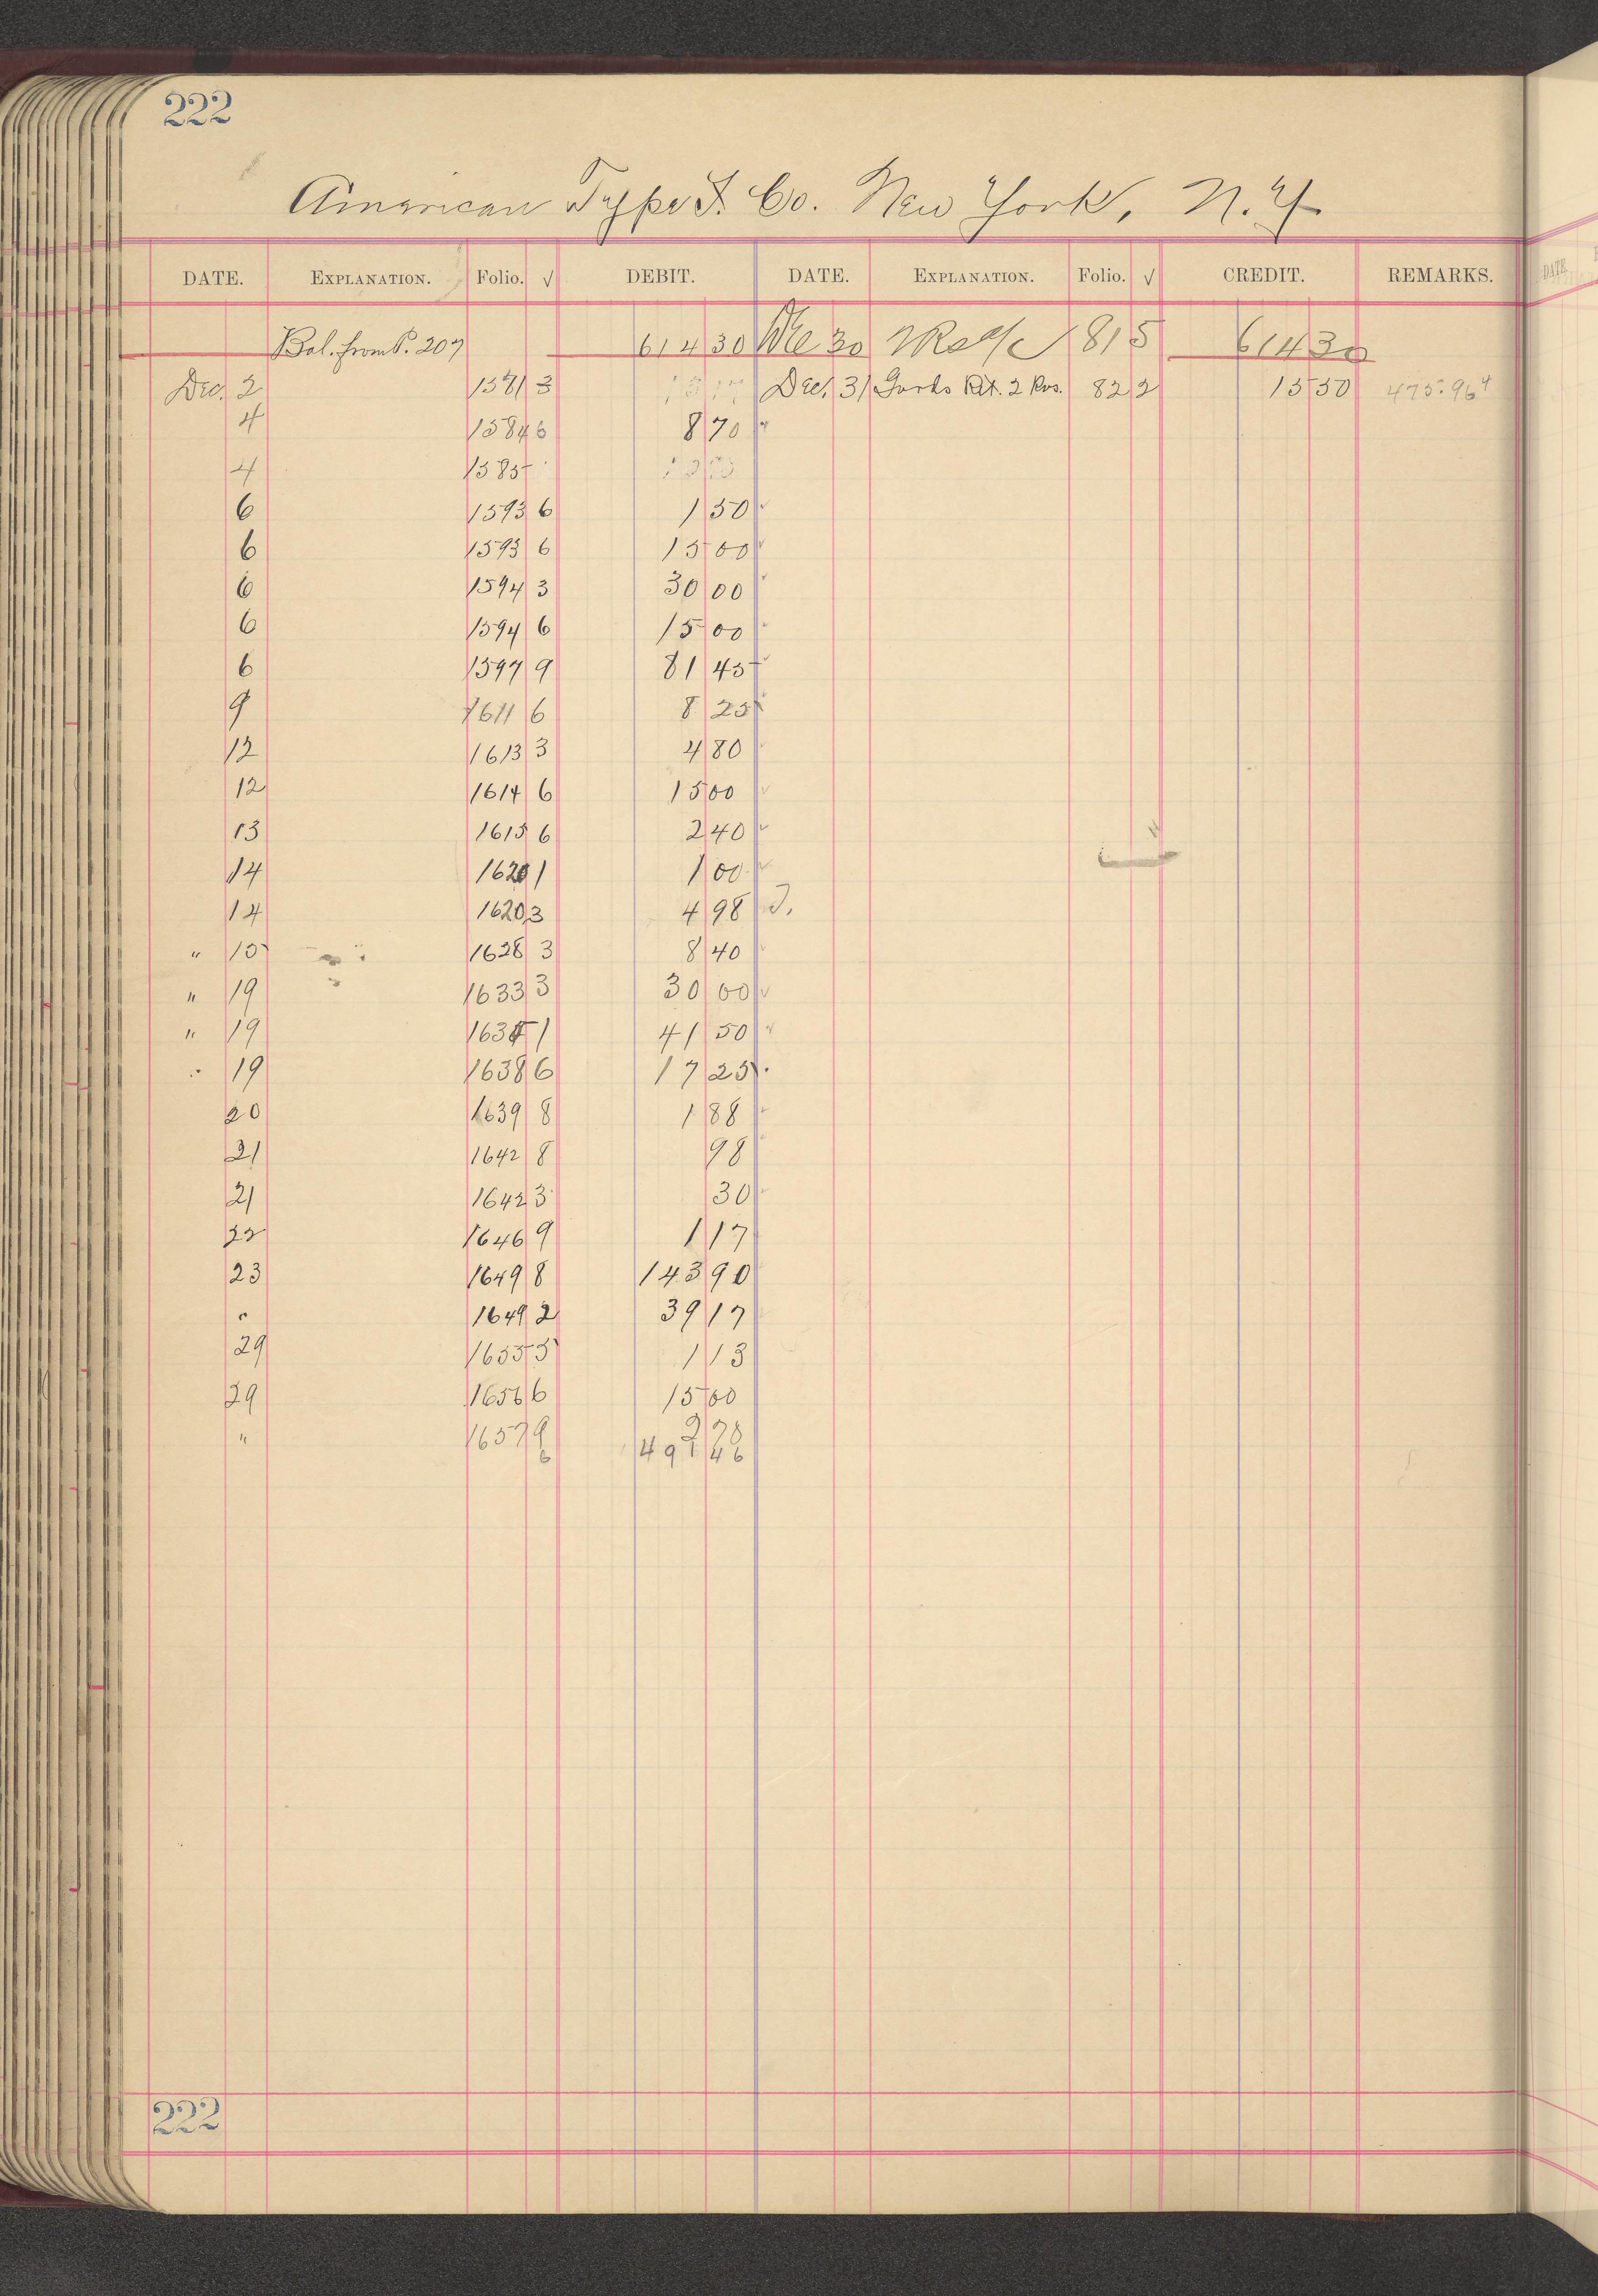 222
American Type F. Co. New York, N.Y.
DATE. EXPLANATION. Folio. √ DEBIT. DATE. EXPLANATION. Folio. √ CREDIT. REMARKS.
Bal. from P. 207 614 30 Dec 30 815 614 30
Dec. 2 1581 3 Dec. 31 Rt. 2 822 15 50 475.96
4 1584 6 8 70
4 1585
6 1593 6 1 50
6 1593 6 15 00
6 1594 3 30 00
6 1594 6 15 00
6 1597 9 81 45
9 1611 6 8 25
12 1613 3 4 80
12 1614 6 15 00
13 1615 6 2 40
14 1620 1 1 00
14 1620 3 4 98
" 15 1628 3 8 40
" 19 1633 3 30 00
" 19 1 41 50
" 19 1638 6 17 25
20 1639 8 1 88
21 1642 8 98
21 1642 3 30
22 1646 9 1 17
23 1649 8 143 90
" 1649 2 39 17
29 1655 3 1 13
29 1656 6 15 00
" 1657 9 2 78
6 491 46
222